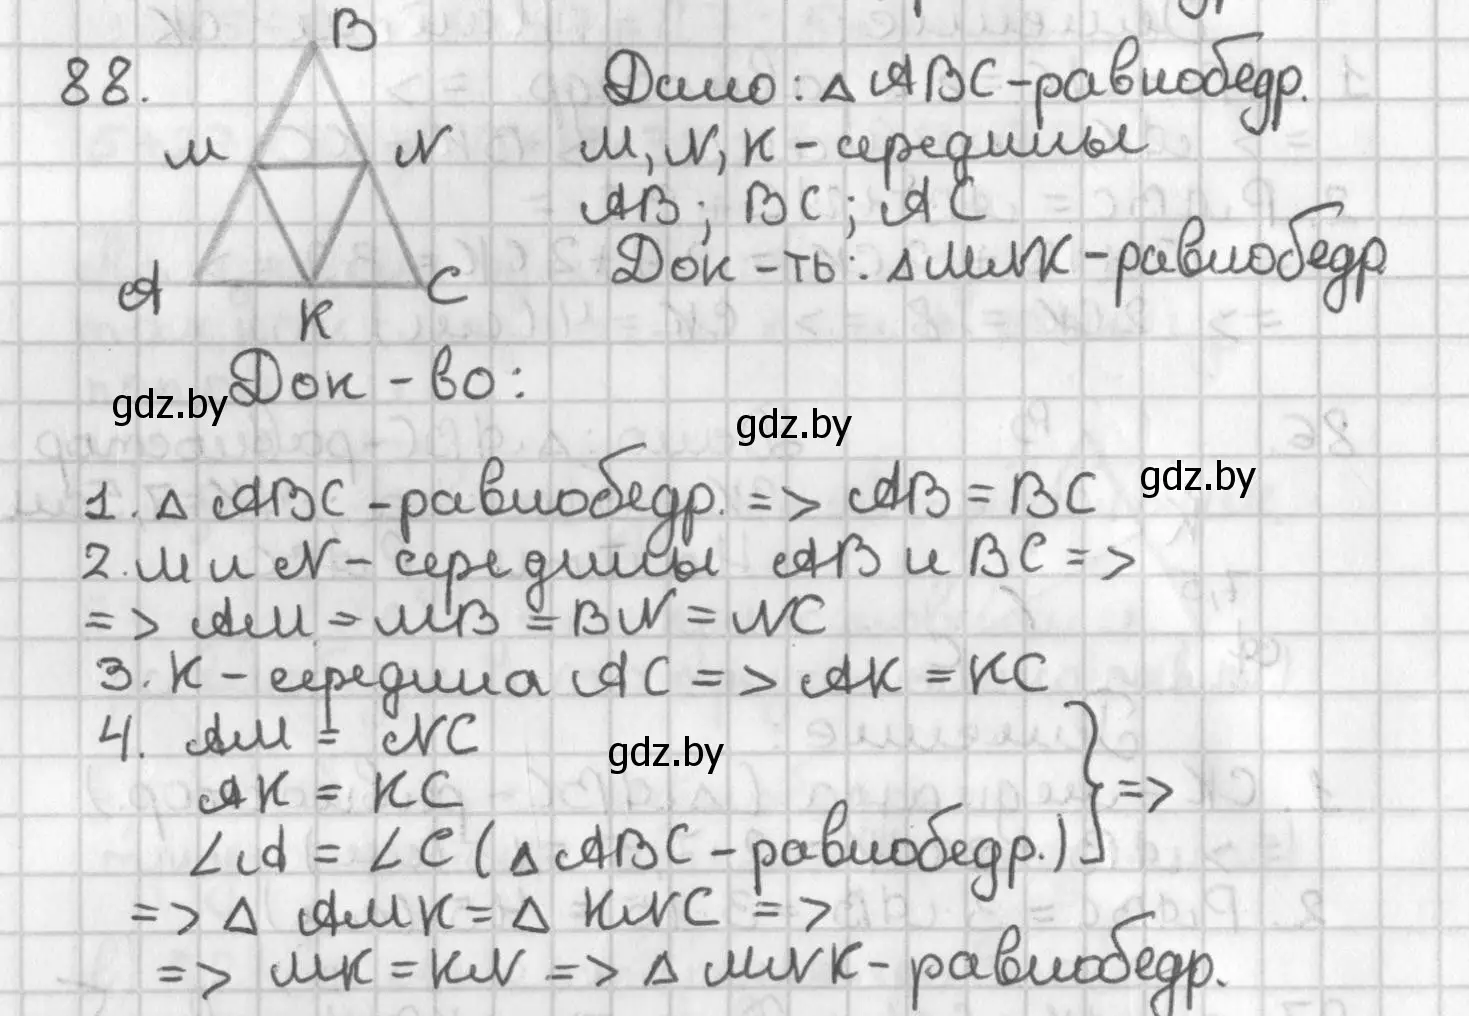 B
88.
M
N
A
K
C
Дано: Δ ABC-равнобедр.
M, N, K - середины
AB; BC; AC
Док-ть: Δ MNK-равнобедр
Док-во:
gdz.by
gdz.by
gdz.by
1. Δ ABC-равнобедр. => AB = BC
2. M и N - середины AB и BC =>
=> AM = MB = BN = NC
3. K - середина AC => AK = KC
4. AM = NC
gdz.by
AK = KC } =>
∠A = ∠C (Δ ABC-равнобедр.)
=> Δ AMK = Δ KNC =>
=> MK = KN => Δ MNK-равнобедр.